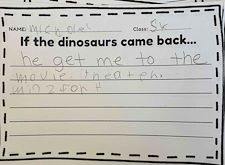 NAME: michael Class: SK
If the dinosaurs came back...
he get me to the
movie. theatph.